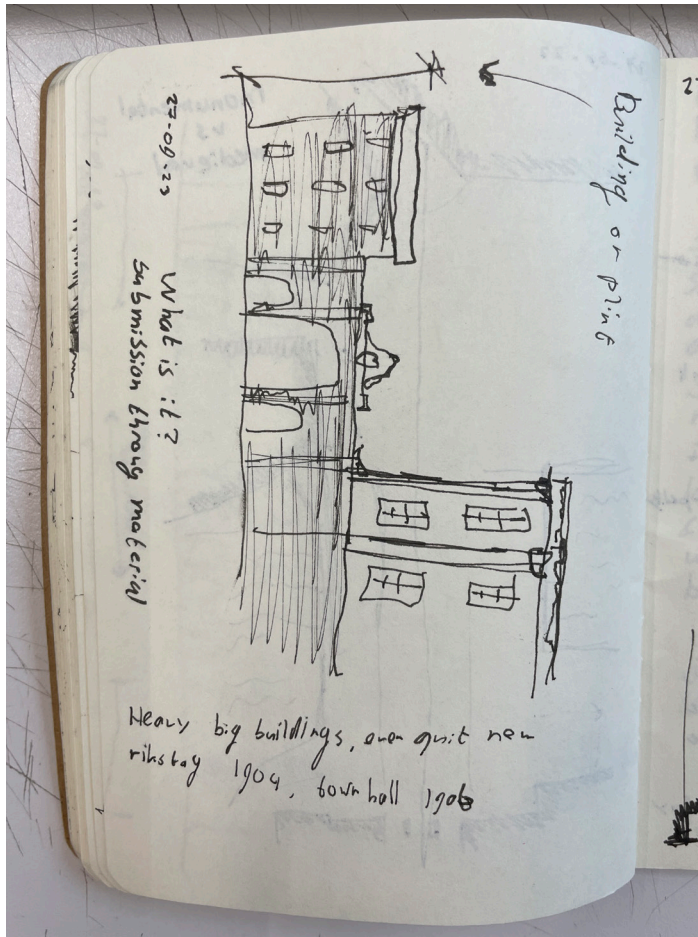 Building or plint
27-09-23
What is it?
submission throug material
Heavy big buildings, even quit new
rikstag 1904, town hall